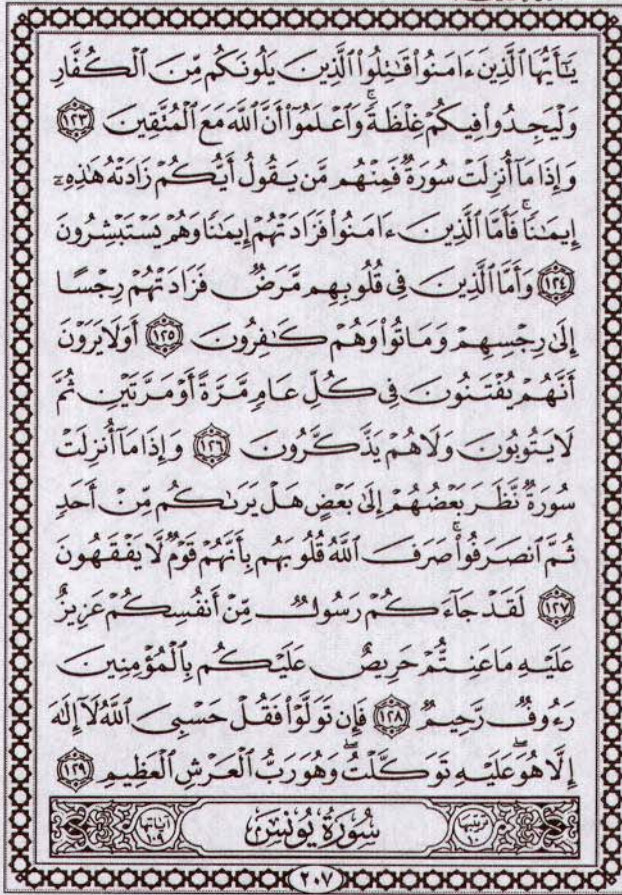 يَٰٓأَيُّهَا ٱلَّذِينَ ءَامَنُوا۟ قَٰتِلُوا۟ ٱلَّذِينَ يَلُونَكُم مِّنَ ٱلْكُفَّارِ
وَلْيَجِدُوا۟ فِيكُمْ غِلْظَةً ۚ وَٱعْلَمُوٓا۟ أَنَّ ٱللَّهَ مَعَ ٱلْمُتَّقِينَ ١٢٣
وَإِذَا مَآ أُنزِلَتْ سُورَةٌ فَمِنْهُم مَّن يَقُولُ أَيُّكُمْ زَادَتْهُ هَٰذِهِۦٓ
إِيمَٰنًا ۚ فَأَمَّا ٱلَّذِينَ ءَامَنُوا۟ فَزَادَتْهُمْ إِيمَٰنًا وَهُمْ يَسْتَبْشِرُونَ
١٢٤ وَأَمَّا ٱلَّذِينَ فِى قُلُوبِهِم مَّرَضٌ فَزَادَتْهُمْ رِجْسًا
إِلَىٰ رِجْسِهِمْ وَمَاتُوا۟ وَهُمْ كَٰفِرُونَ ١٢٥ أَوَلَا يَرَوْنَ
أَنَّهُمْ يُفْتَنُونَ فِى كُلِّ عَامٍ مَّرَّةً أَوْ مَرَّتَيْنِ ثُمَّ
لَا يَتُوبُونَ وَلَا هُمْ يَذَّكَّرُونَ ١٢٦ وَإِذَا مَآ أُنزِلَتْ
سُورَةٌ نَّظَرَ بَعْضُهُمْ إِلَىٰ بَعْضٍ هَلْ يَرَىٰكُم مِّنْ أَحَدٍ
ثُمَّ ٱنصَرَفُوا۟ ۚ صَرَفَ ٱللَّهُ قُلُوبَهُم بِأَنَّهُمْ قَوْمٌ لَّا يَفْقَهُونَ
١٢٧ لَقَدْ جَآءَكُمْ رَسُولٌ مِّنْ أَنفُسِكُمْ عَزِيزٌ
عَلَيْهِ مَا عَنِتُّمْ حَرِيصٌ عَلَيْكُم بِٱلْمُؤْمِنِينَ
رَءُوفٌ رَّحِيمٌ ١٢٨ فَإِن تَوَلَّوْا۟ فَقُلْ حَسْبِىَ ٱللَّهُ لَآ إِلَٰهَ
إِلَّا هُوَ ۖ عَلَيْهِ تَوَكَّلْتُ ۖ وَهُوَ رَبُّ ٱلْعَرْشِ ٱلْعَظِيمِ ١٢٩
ترتيبها ١٠ سُورَةُ يُونُسَ آياتها ١٠٩
٢٠٧